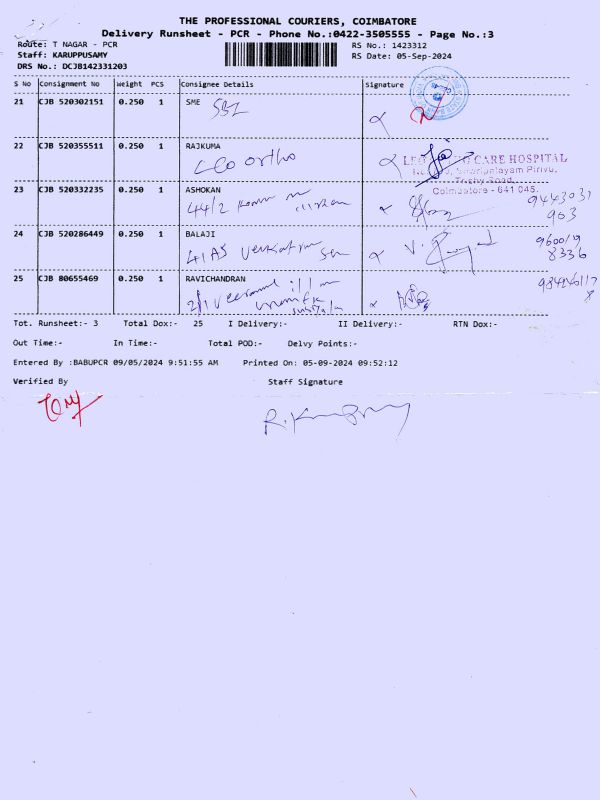 THE PROFESSIONAL COURIERS, COIMBATORE
Delivery Runsheet - PCR - Phone No.:0422-3505555 - Page No.:3
Route: T NAGAR - PCR
RS No.: 1423312
Staff: KARUPPUSAMY
RS Date: 05-Sep-2024
DRS No.: DCJB142331203
S No Consignment No Weight PCS Consignee Details Signature
21 CJB 520302151 0.250 1 SME
SBI
22 CJB 520355511 0.250 1 RAJKUMA
Leo ortho
CARE HOSPITAL
Trichy Road,
Coimbatore - 641 045.
23 CJB 520332235 0.250 1 ASHOKAN
44/2
9443031
963
24 CJB 520286449 0.250 1 BALAJI
41 A5
960019
8336
25 CJB 80655469 0.250 1 RAVICHANDRAN
2/1
Tot. Runsheet:- 3 Total Dox:- 25 I Delivery:- II Delivery:- RTN Dox:-
Out Time:- In Time:- Total POD:- Delvy Points:-
Entered By :BABUPCR 09/05/2024 9:51:55 AM Printed On: 05-09-2024 09:52:12
Verified By Staff Signature